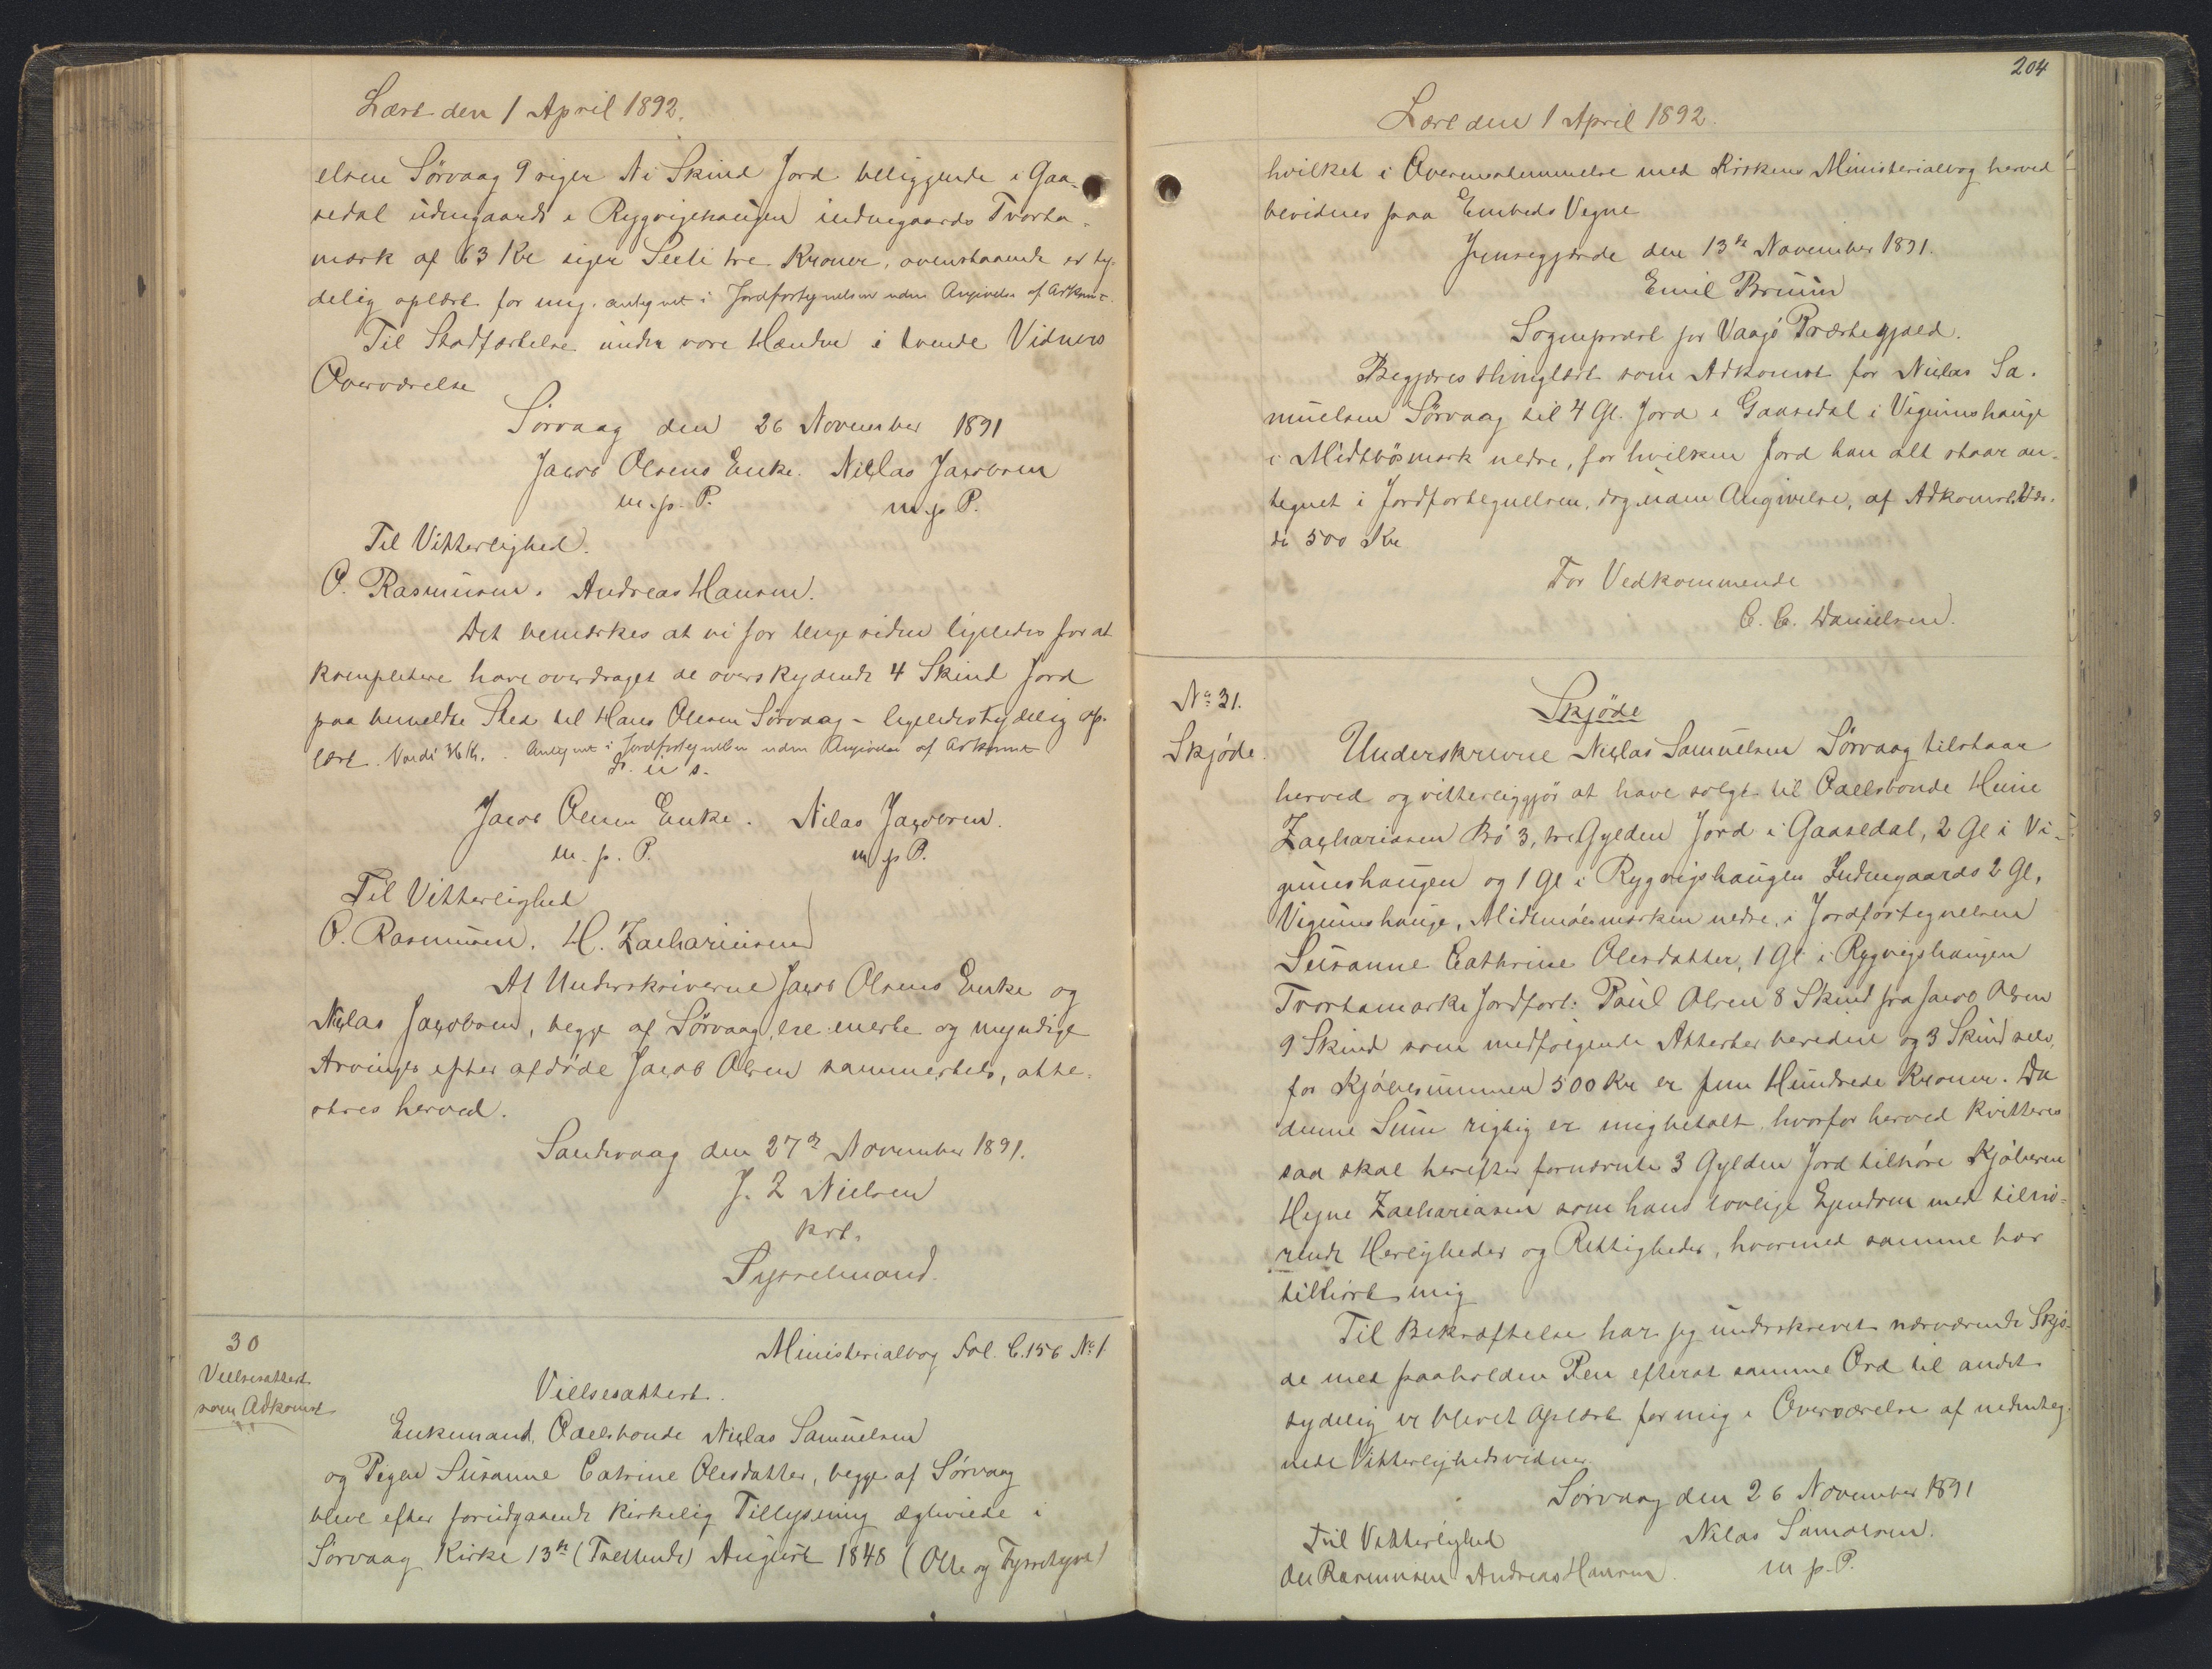 Læst den 1 April 1892.
elsen Sørvaag 9 siger Ni Skind Jord beliggende i Gaa-
sedal udengaards i Rygvigehaugen indengaards Tvorta-
mark af 63 Kr siger Seksti tre Kroner, ovenstaaende er ty-
delig oplæst for mig. antegnet i Jordfortegnelsen uden Angivelse af Adkomst.
Til Stadfæstelse under vore Hænder i tvende Vidners
Overværelse
Sørvaag den 26 November 1891
Jacob Olsens Enke. Niclas Jacobsen
m. p. P. m. p P.
Til Vitterlighed.
O. Rasmusen. Andreas Hansen.
Det bemærkes at vi for længe siden ligeledes for at
kompletere have overdraget de overskydende 4 Skind Jord
paa bemeldte Sted til Hans Olesen Sørvaag - ligeledes tydelig op-
læst. Værdi 36 Kr. Antegnet i Jordfortegnelsen uden Angivelse af Adkomst
D. u s.
Jacob Olesen Enke. Niclas Jacobsen.
m. p. P. m p P.
Til Vitterlighed
O. Rasmusen. H. Zachariasen
At Underskriverne Jacob Olsens Enke og
Niclas Jacobsen, begge af Sørvaag, ere eneste og myndige
Arvinger efter afdøde Jacob Olsen sammesteds, atte-
steres herved.
Sandvaag den 27de November 1891.
J. Z Nielsen
kst.
Sysselmand.
30
Vielsesattest
som Adkomst
Ministerialbog Fol. C. 156 No 1
Vielsesattest.
Enkemand, Odelsbonde Niclas Samuelsen
og Pigen Susanne Catrine Olesdatter, begge af Sørvaag
bleve efter forudgaaende kirkelig Tillysning ægteviede i
Sørvaag Kirke 13de (Trettende) August 1848 (Otte og Fyrretyve)
204
Læst den 1 April 1892.
hvilket i Overensstemmelse med Kirkens Ministerialbog herved
bevidnes paa Embeds Vegne
Jensegjærde den 13de November 1891.
Emil Bruun
Sognepræst for Vaagø Præstegjæld.
Begjæres thinglæst som Adkomst for Niclas Sa-
muelsen Sørvaag til 4 Gl. Jord i Gaasedal i Vigumshauge
i Midtbøsmark nedre, for hvilken Jord han alt staar an-
tegnet i Jordfortegnelsen, dog uden Angivelse, af Adkomst. Vær-
di 500 Kr
For Vedkommende
C. C. Danielsen.
No 31.
Skjøde.
Skjøde
Underskrevne Niclas Samuelsen Sørvaag tilstaar
herved og vitterliggjør at have solgt til Odelsbonde Heine
Zachariasen Bø 3, tre Gylden Jord i Gaasedal, 2 Gl i Vi-
gumshaugen og 1 Gl i Rygvigshaugen Indengaards 2 Gl,
Vigumshauge, Midtmøesmarken nedre, i Jordfortegnelsen
Susanne Cathrine Olesdatter, 1 Gl i Rygvigshaugen
Tvortamarke Jordfort: Paul Olsen 8 Skind fra Jacob Olsen
9 Skind som medfølgende Attester beredne og 3 Skind selv,
for Kjøbesummen 500 Kr er fem Hundrede Kroner. Da
denne Sum rigtig er mig betalt, hvorfor herved kvitteres
saa skal herefter fornævnte 3 Gylden Jord tilhøre Kjøberen
Hejne Zachariasen som hans lovlige Ejendom med tilhø-
rende Herligheder og Rettigheder, hvormed samme har
tilhørt mig
Til Bekræftelse har jeg underskrevet nærværende Skjø-
de med paaholden Pen efterat samme Ord til andet
tydelig er blevet oplæst for mig i Overværelse af undenteg-
nede Vitterlighedsvidner
Sørvaag den 26 November 1891
Til Vitterlighed Niclas Samuelsen.
Ole Rasmussen Andreas Hansen. m p. P.